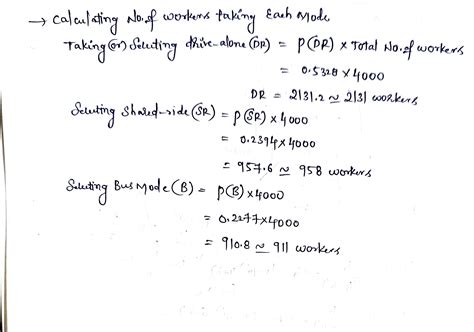 → Calculating No. of workers taking Each Mode
Taking (or) Selecting drive-alone (DR) = P(DR) × Total No. of workers
= 0.5328 × 4000
DR = 2131.2 ≃ 2131 workers
Selecting Shared-ride (SR) = P(SR) × 4000
= 0.2394 × 4000
= 957.6 ≃ 958 workers
Selecting Bus Mode (B) = P(B) × 4000
= 0.2277 × 4000
= 910.8 ≃ 911 workers